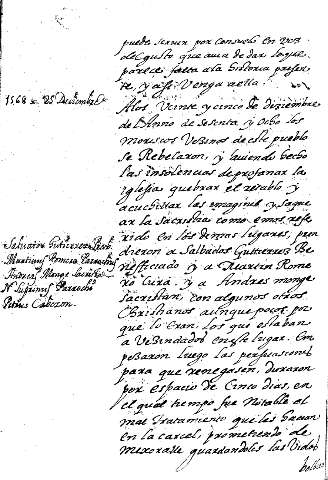 puede servir por consuelo en vez
del gusto que avia de dar lo que
parece falta a la historia presen
te, y assi venga aella.
1568 25 Diciembre
Alos Veinte y cinco de diziembre
de l Anno de sesenta y ocho los
moriscos Vezinos de este pueblo
se Rebelaron, y aviendo hecho
las insolencias de profanar la
iglesias quebrar el retablo y
acuchillar las imagines y saque
ar la sacristia como emos refe
rido en los demas lugares, pren
dieron a Salbador Gutierrez Be
neficiado y a Martin Rome
ro Cura, y a Andres monje
sacristan, con algunos otros
Christianos aunque pocos por
que lo eran los que estaban
a Vezindados en este lugar. Em
pezaron luego las persuasiones
para que renegasen, duraron
por espacio de Cinco dias, en
el qual tiempo fue Notable el
mal tratamiento que les hacian
en la carcel, prometiendo de
mexorarse guardandoles las Vidas
Salvator Gutierrez
Martinus Romero
Andreas Monge
Petrus